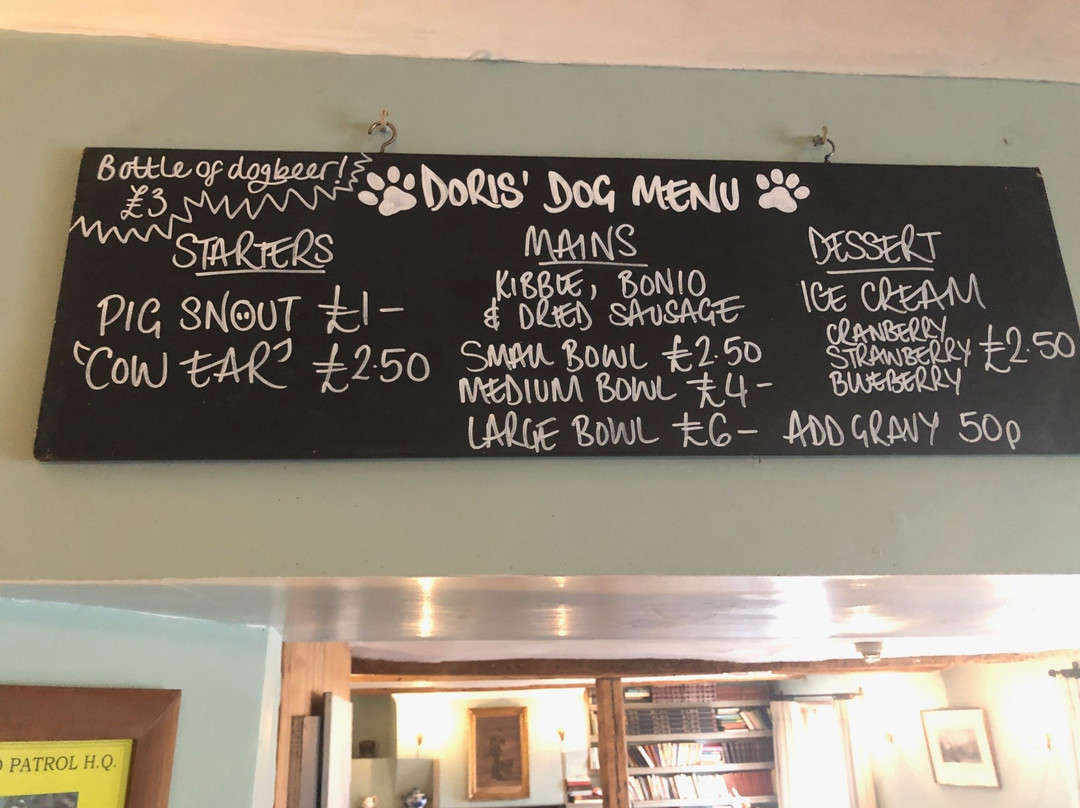 Bottle of dogbeer!
£3
DORIS' DOG MENU
STARTERS
PIG SNOUT £1-
'COW EAR' £2.50
MAINS
KIBBLE, BONIO
& DRIED SAUSAGE
SMALL BOWL £2.50
MEDIUM BOWL £4-
LARGE BOWL £6-
DESSERT
ICE CREAM
CRANBERRY
STRAWBERRY £2.50
BLUEBERRY
ADD GRAVY 50p
PATROL H.Q.